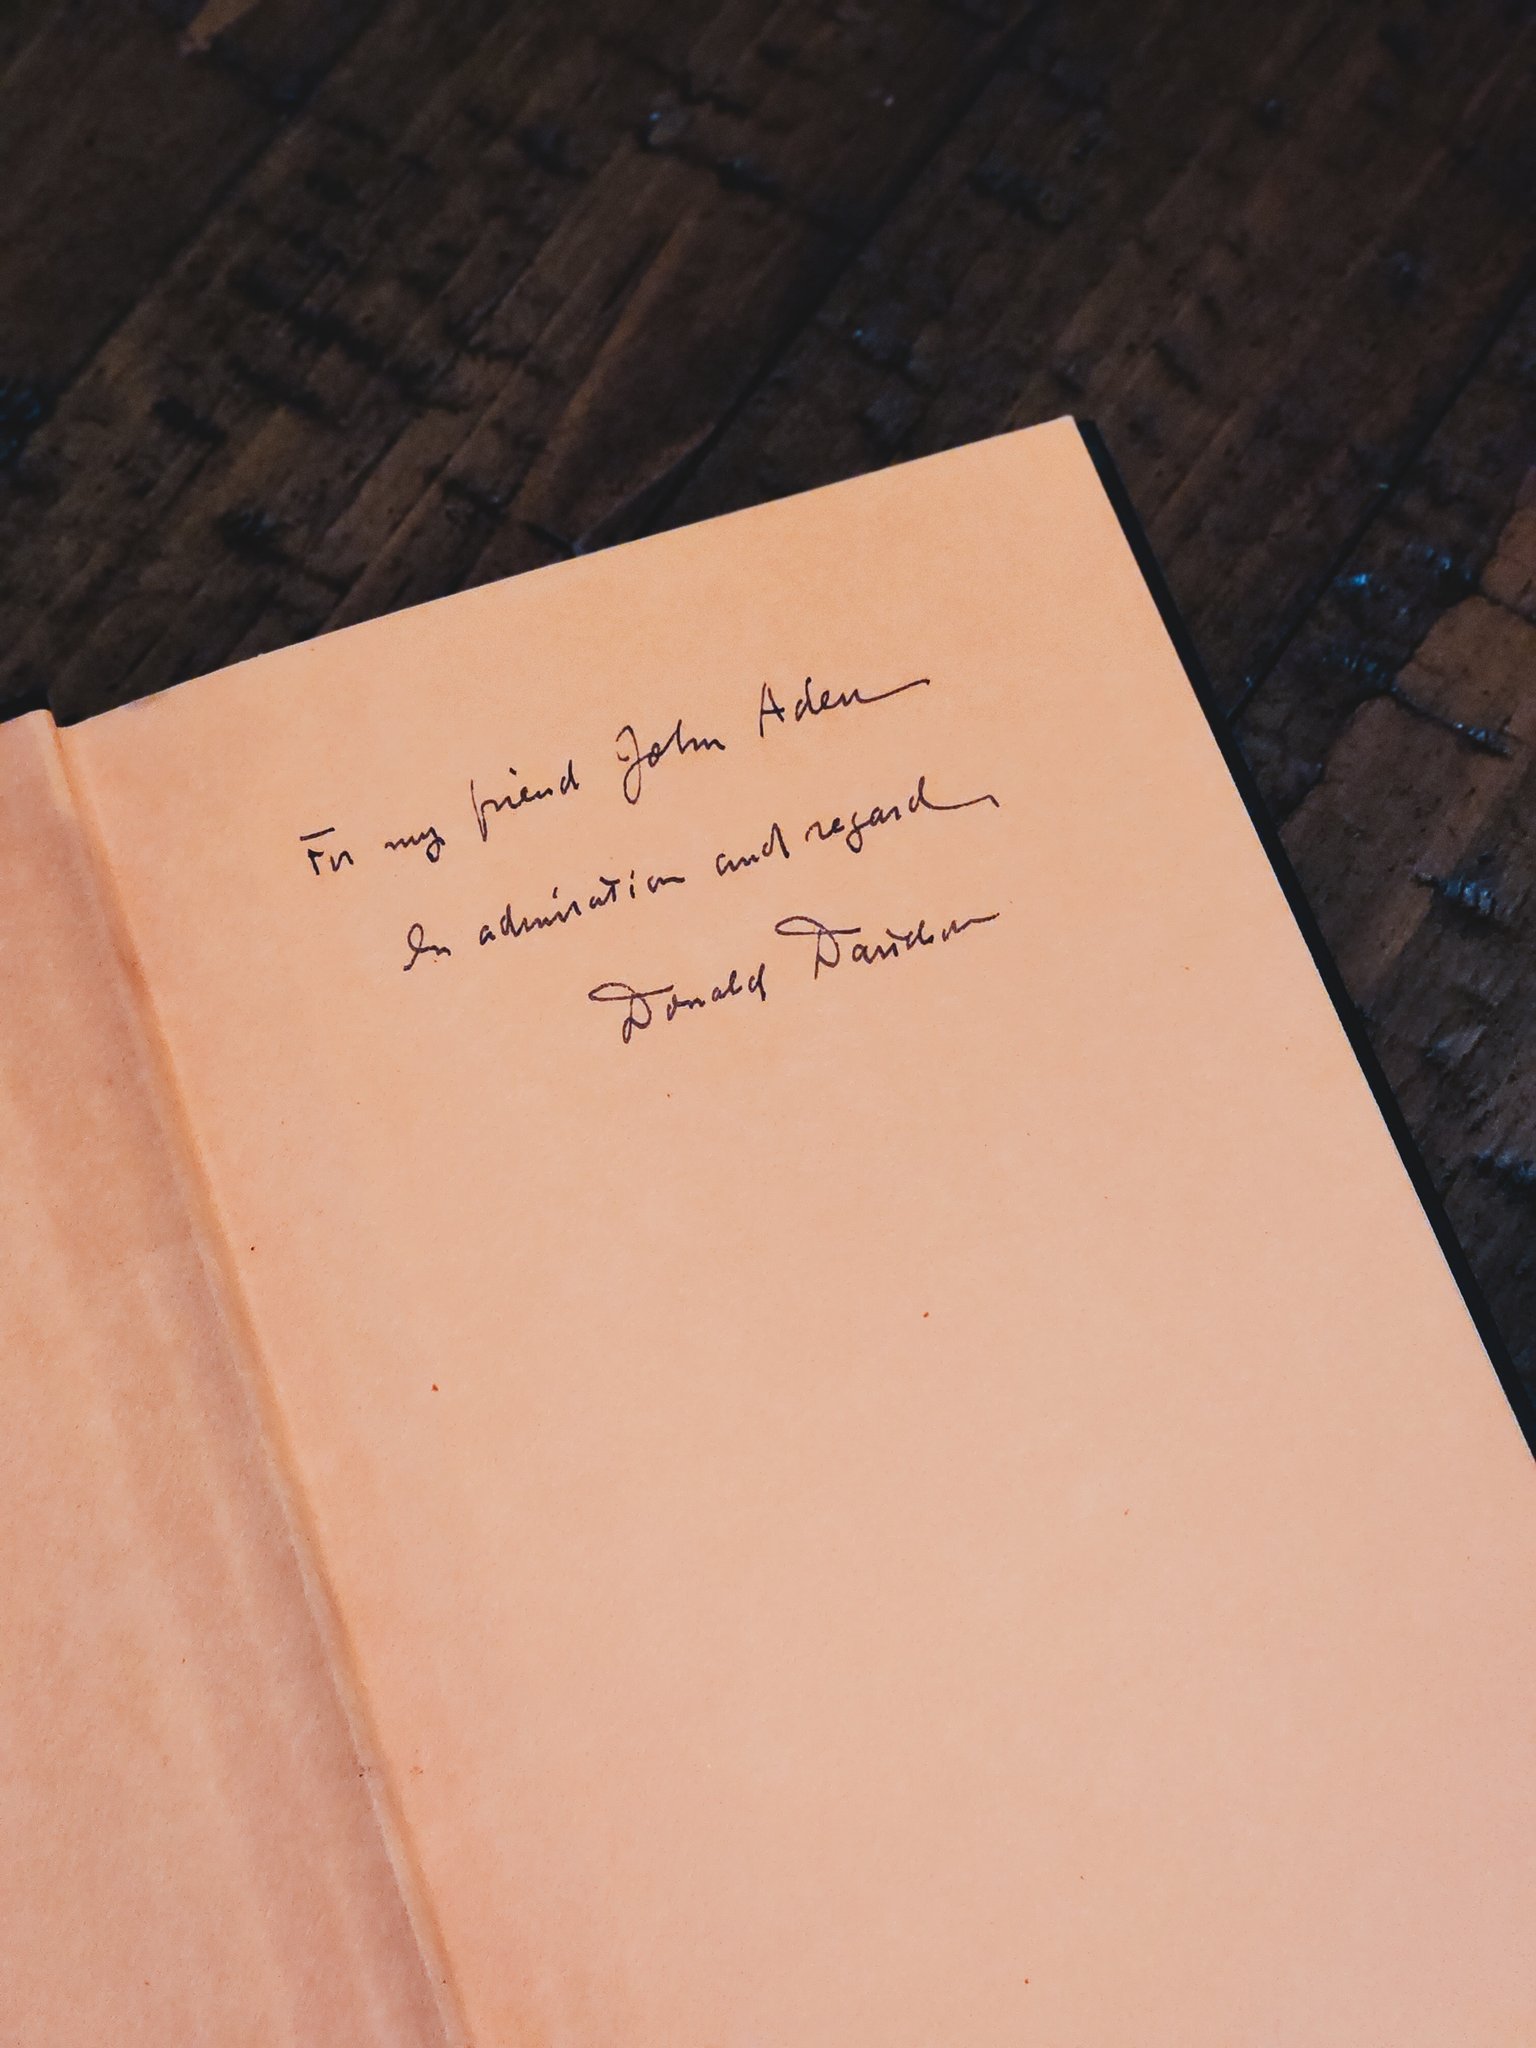 For my friend John Aden
In admiration and regard
Donald Davidson